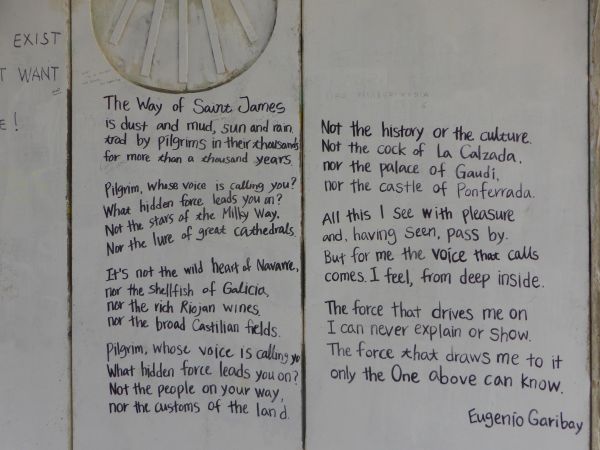 EXIST
WANT
E!
The Way of Saint James
is dust and mud, sun and rain,
trod by pilgrims in their thousands
for more than a thousand years.
Pilgrim, whose voice is calling you?
What hidden force leads you on?
Not the stars of the Milky Way,
Nor the lure of great cathedrals.
It's not the wild heart of Navarre,
nor the shellfish of Galicia,
nor the rich Riojan wines,
nor the broad Castilian fields.
Pilgrim, whose voice is calling yo
What hidden force leads you on?
Not the people on your way,
nor the customs of the land.
Not the history or the culture.
Not the cock of La Calzada,
nor the palace of Gaudi,
nor the castle of Ponferrada.
All this I see with pleasure
and, having seen, pass by.
But for me the voice that calls
comes. I feel, from deep inside.
The force that drives me on
I can never explain or show.
The force that draws me to it
only the One above can know.
Eugenio Garibay